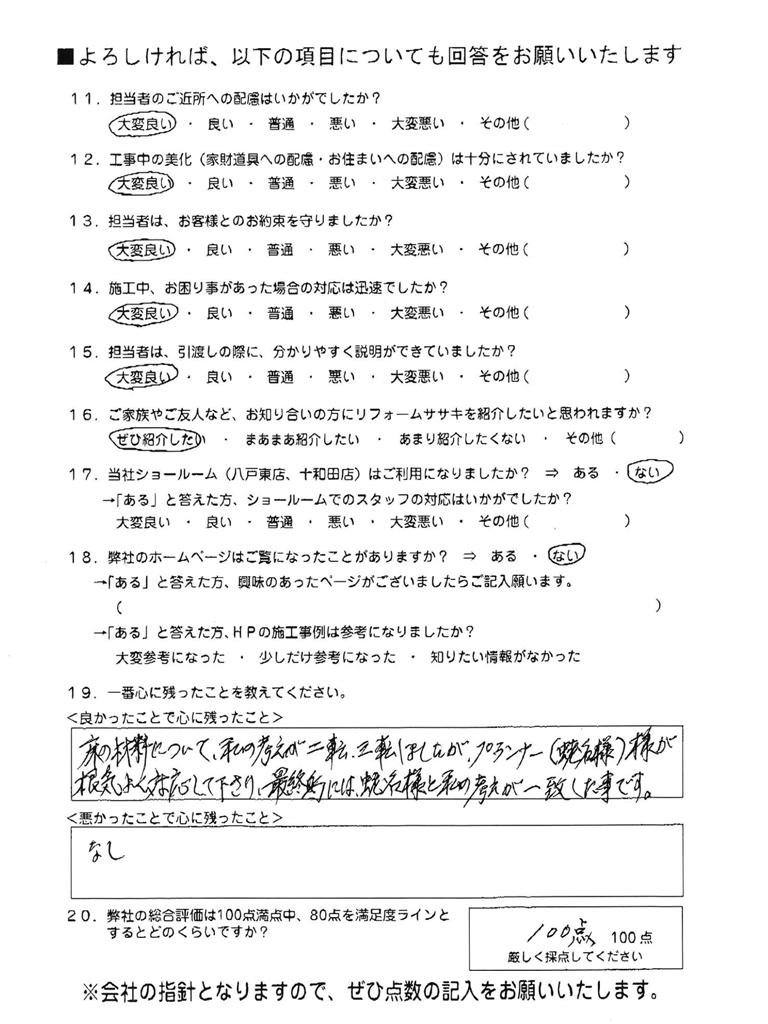 ■よろしければ、以下の項目についても回答をお願いいたします
１１．担当者のご近所への配慮はいかがでしたか？
大変良い ・ 良い ・ 普通 ・ 悪い ・ 大変悪い ・ その他（　　　　　）
１２．工事中の美化（家財道具への配慮・お住まいへの配慮）は十分にされていましたか？
大変良い ・ 良い ・ 普通 ・ 悪い ・ 大変悪い ・ その他（　　　　　）
１３．担当者は、お客様とのお約束を守りましたか？
大変良い ・ 良い ・ 普通 ・ 悪い ・ 大変悪い ・ その他（　　　　　）
１４．施工中、お困り事があった場合の対応は迅速でしたか？
大変良い ・ 良い ・ 普通 ・ 悪い ・ 大変悪い ・ その他（　　　　　）
１５．担当者は、引渡しの際に、分かりやすく説明ができていましたか？
大変良い ・ 良い ・ 普通 ・ 悪い ・ 大変悪い ・ その他（　　　　　）
１６．ご家族やご友人など、お知り合いの方にリフォームササキを紹介したいと思われますか？
ぜひ紹介したい ・ まあまあ紹介したい ・ あまり紹介したくない ・ その他（　　　　）
１７．当社ショールーム（八戸東店、十和田店）はご利用になりましたか？ ⇒ ある ・ ない
→「ある」と答えた方、ショールームでのスタッフの対応はいかがでしたか？
大変良い ・ 良い ・ 普通 ・ 悪い ・ 大変悪い ・ その他（　　　　　）
１８．弊社のホームページはご覧になったことがありますか？ ⇒ ある ・ ない
→「ある」と答えた方、興味のあったページがございましたらご記入願います。
（　　　　　　　　　　）
→「ある」と答えた方、ＨＰの施工事例は参考になりましたか？
大変参考になった ・ 少しだけ参考になった ・ 知りたい情報がなかった
１９．一番心に残ったことを教えてください。
＜良かったことで心に残ったこと＞
床の材料について、私の考えが二転、三転しましたが、プランナー（蛯名様）様が
根気よく対応して下さり、最終的には、蛯名様と私の考えが一致した事です。
＜悪かったことで心に残ったこと＞
なし
２０．弊社の総合評価は100点満点中、80点を満足度ラインと
するとどのくらいですか？
100点 100点
厳しく採点してください
※会社の指針となりますので、ぜひ点数の記入をお願いいたします。